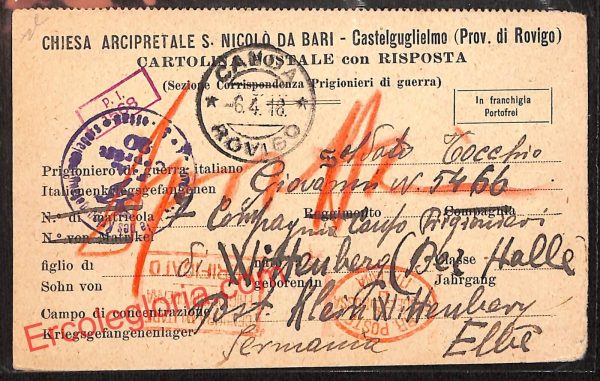 CHIESA ARCIPRETALE S. NICOLÒ DA BARI - Castelguglielmo (Prov. di Rovigo)
CARTOLINA POSTALE con RISPOSTA
(Sezione Corrispondenza Prigionieri di guerra)
In franchigia
Portofrei
P. I.
CANDA
* -6.4.18. *
ROVIGO
Soldato Tocchio
Prigioniero di guerra italiano
Italienenkriegsgefangenen
Giovanni N. 5466
N. di matricola Reggimento Compagnia
N.º von Matrikel
7 Compagnia Campo Prigionieri
figlio di nato Classe
Sohn von geborenan Jahrgang
di Wittenberg (Bez Halle
Campo di concentrazione
Kriegsgefangenenlager
Post. Klein Wittenberg
Germania Elbe
VERIFICATO
POSTA
Ercolegloria.com